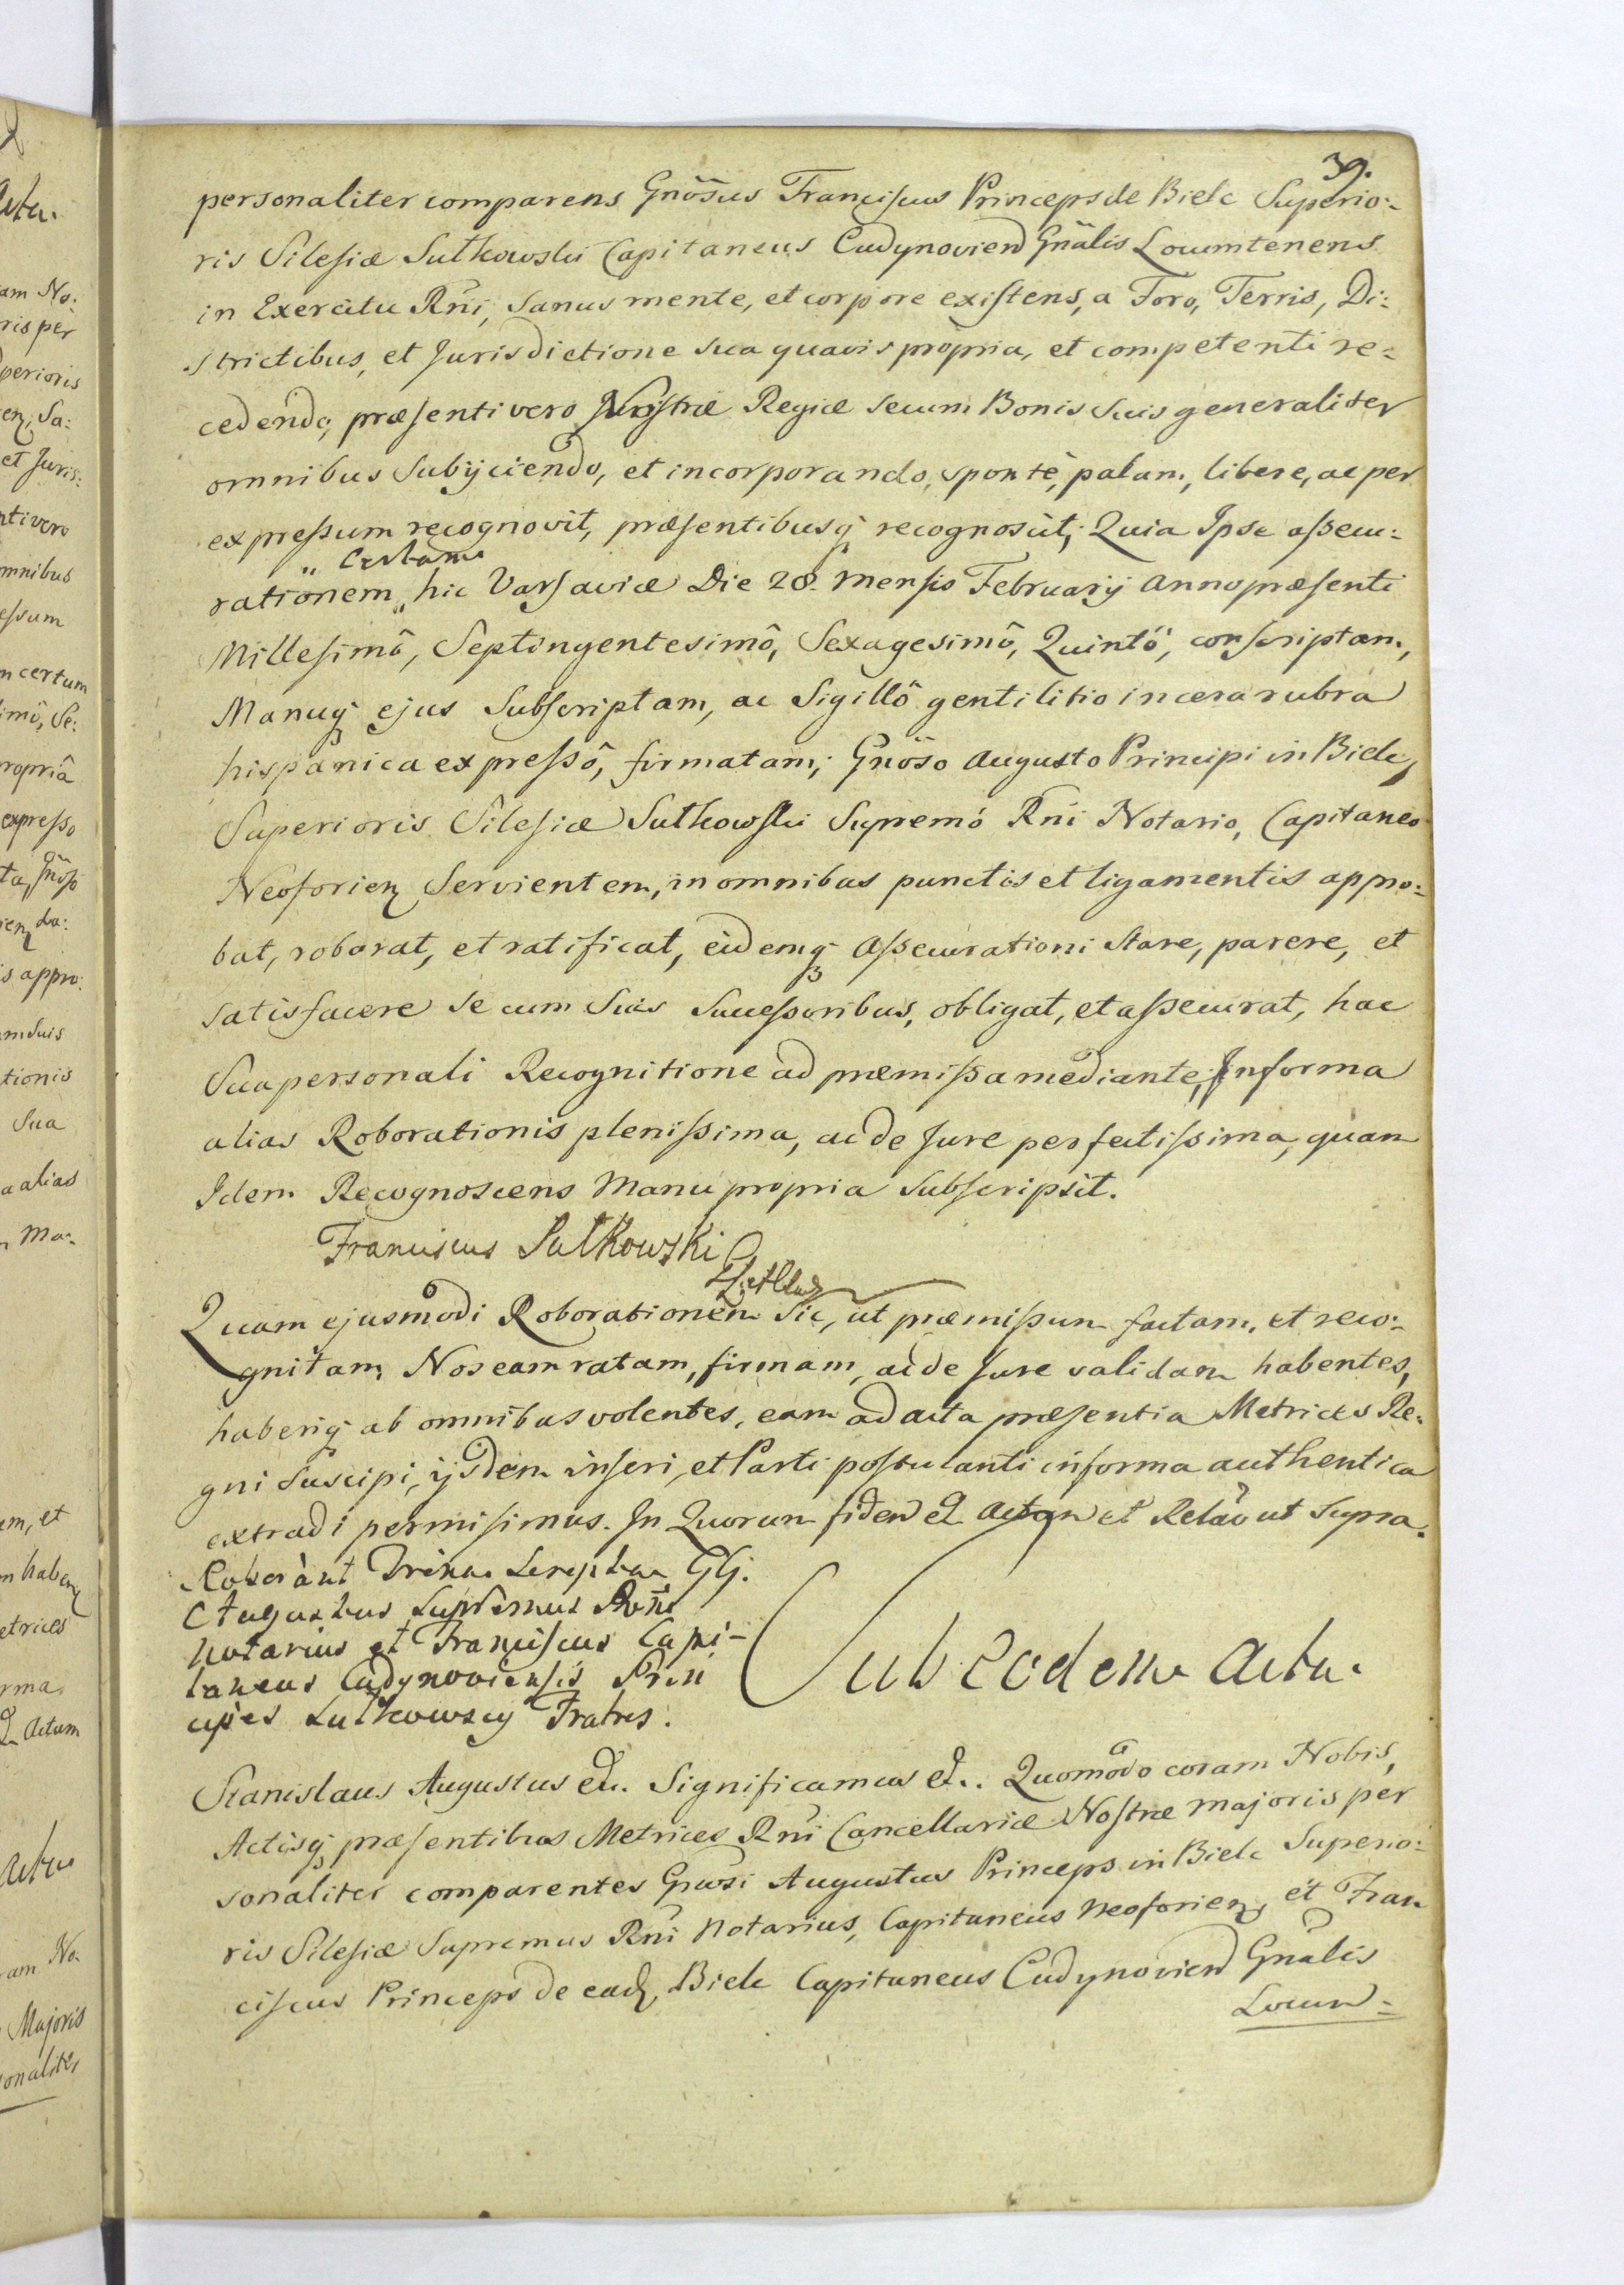 39.
personaliter comparens Gnösus Franciscus Princeps de Biele Superio:
ris Silesiæ Sułkowski Capitaneus Cudynovien Gnãlis Locumtenens
in Exercitu Rñi, Sanus mente, et corpore existens, a Foro, Terris, Di:
strictibus, et Jurisdictione sua quavis propria, et competenti re:
cedendo, præsenti vero Regiæ secum Bonis suis generaliter
omnibus Subijciendo, et incorporando, sponte, palam, libere, ac per
expressum recognovit, præsentibusq recognoscit; Quia Ipse assecu:
" Certam
rationem " hic Varsaviæ Die 28. mensis Februarij Anno præsenti
Millesimô, Septingentesimô, Sexagesimô, Quintô, conscriptam,
Manuq ejus Subscriptam, ac Sigillô gentilitio in cera rubra
hispanica expressô, firmatam; Gnöso Augusto Principi in Biele,
Superioris Silesiæ Sułkowski Supremô Rñi Notario, Capitaneo
Neoforien Servientem, in omnibus punctis et ligamentis appro:
bat, roborat, et ratificat, eidemq Assecurationi stare, parere, et
satisfacere se cum Suis Successoribus, obligat, et assecurat, hac
Sua personali Recognitione ad præmissa mediante, In forma
alias Roborationis plenissima, ac de Jure perfectissima, quam
Idem Recognoscens Manu propria Subscripsit.
Franciscus Sułkowski
Quam ejusmodi Roborationem Sic, ut præmissum factam, et reco:
gnitam, Nos eam ratam, firmam, ac de Jure validam habentes,
haberiq ab omnibus volentes, eam ad acta præsentia Metrices Re:
gni Suscipi, ijsdem inseri, et Parti postulanti in forma authentica
extradi permisimus. In Quorum fidem et Actum et Relão ut Supra.
Roborant Głj.
Augustus Supremus Rñi
Notarius et Franciscus Capi-
taneus Cudynoviensis Prin
cipes Sułkowscy Fratres.
Sub eodem Actu.
Stanislaus Augustus etc. Significamus etc. Quomodo coram Nobis,
Actisq præsentibus Metrices Rñi Cancellariæ Nostræ Majoris per
sonaliter comparentes Gnosi Augustus Princeps in Biele Superio:
ris Silesiæ Supremus Rñi Notarius, Capitaneus Neoforien, et Fran
ciscus Princeps de ead, Biele Capitaneus Cudynovien Gnãlis
Locum=